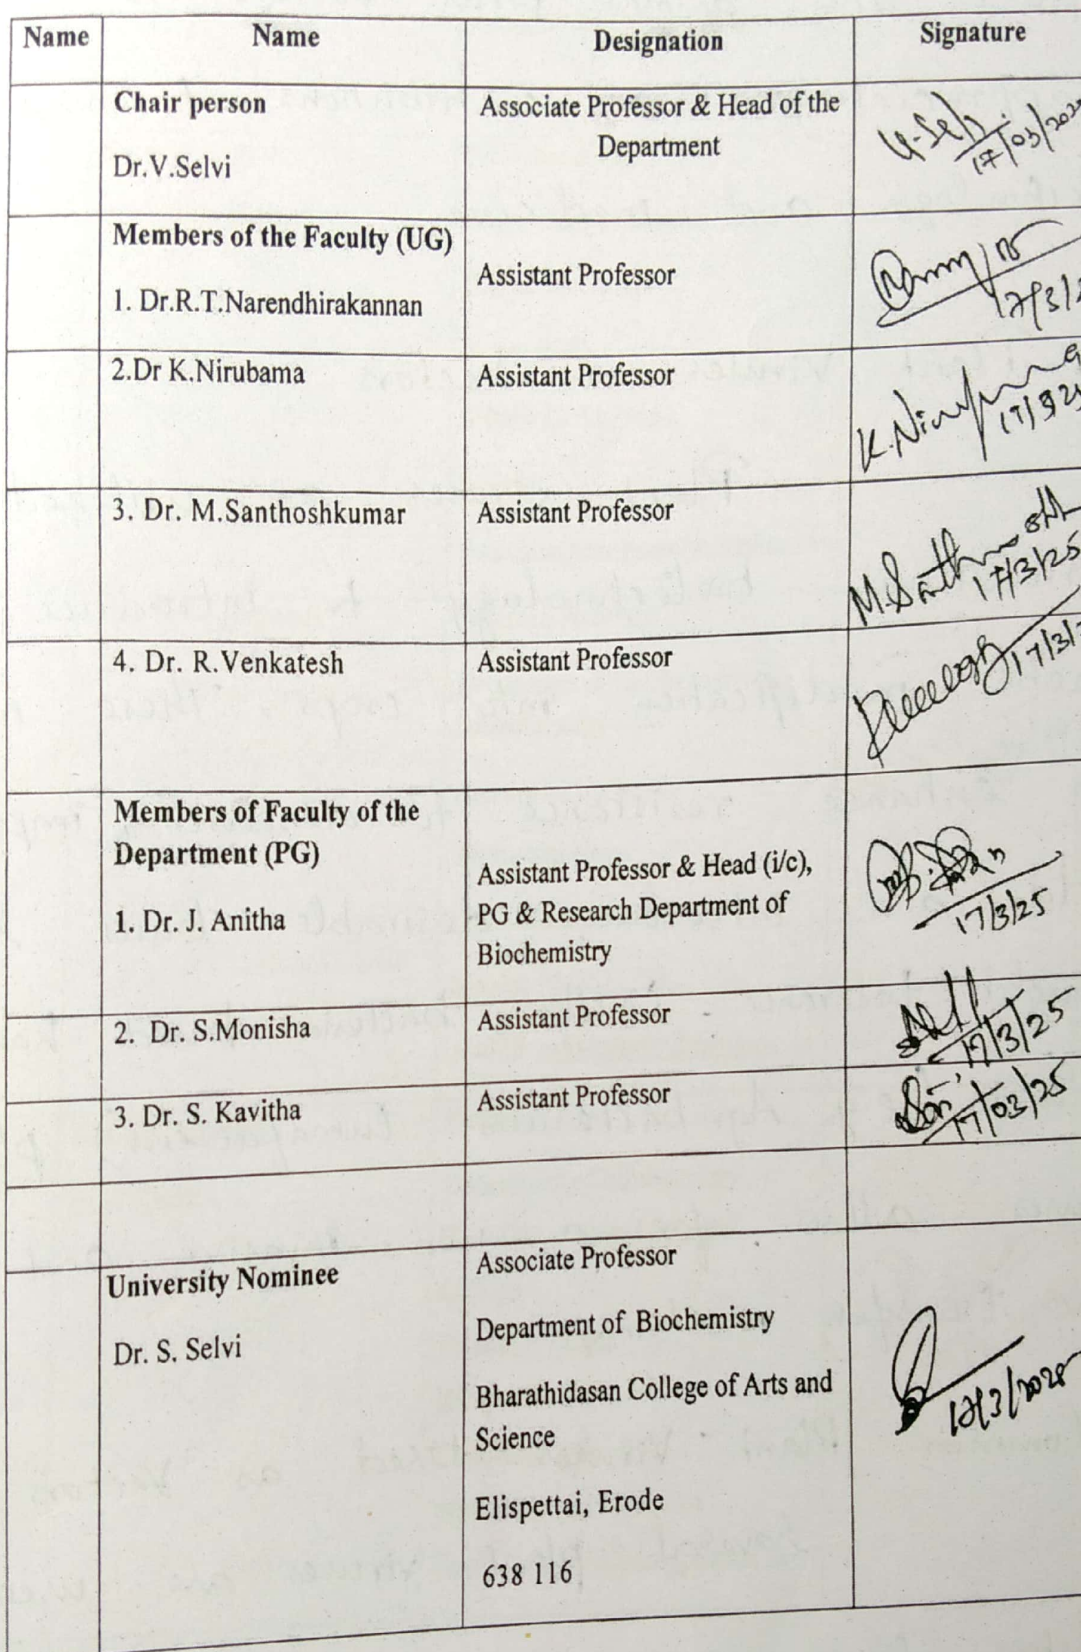 Name Name Designation Signature
Chair person
Dr.V.Selvi
Associate Professor & Head of the
Department
17/03/202
Members of the Faculty (UG)
1. Dr.R.T.Narendhirakannan
Assistant Professor
17/3/2
2.Dr K.Nirubama
Assistant Professor
K.Nirubama
17/3/25
3. Dr. M.Santhoshkumar
Assistant Professor
17/3/25
4. Dr. R.Venkatesh
Assistant Professor
17/3/2
Members of Faculty of the
Department (PG)
1. Dr. J. Anitha
Assistant Professor & Head (i/c),
PG & Research Department of
Biochemistry
17/3/25
2. Dr. S.Monisha
Assistant Professor
17/3/25
3. Dr. S. Kavitha
Assistant Professor
17/03/25
University Nominee
Dr. S. Selvi
Associate Professor
Department of Biochemistry
Bharathidasan College of Arts and
Science
Elispettai, Erode
638 116
17/3/2025